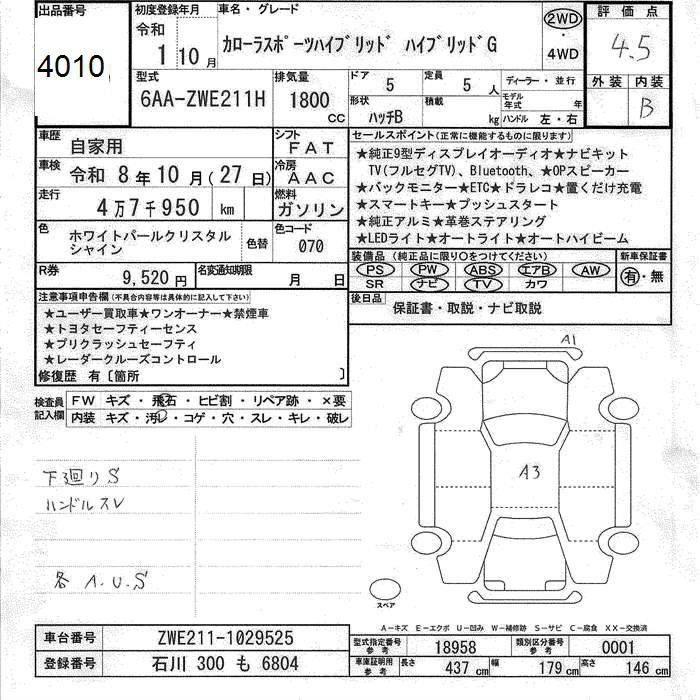 出品番号
4010
初度登録年月
令和
1 10 月
車名・グレード
カローラスポーツハイブリッド ハイブリッドG
2WD
・
4WD
評価点
4.5
外装 内装
B
型式
6AA-ZWE211H
排気量
1800
CC
ドア
5
定員
5 人
形状
ハッチB
積載
kg
ディーラー・並行
モデル年式 年
ハンドル 左・右
車歴
自家用
シフト
FAT
車検
令和 8 年 10 月 ( 27 日)
冷房
AAC
走行
4 万 7 千 950 km
燃料
ガソリン
色
ホワイトパールクリスタル
シャイン
色替
色コード
070
R券
9,520 円
名変通知期限
月 日
セールスポイント(正常に機能するものに限ります)
★純正9型ディスプレイオーディオ★ナビキット
TV(フルセグTV)、Bluetooth、★OPスピーカー
★バックモニター★ETC★ドラレコ★置くだけ充電
★スマートキー★プッシュスタート
★純正アルミ★革巻ステアリング
★LEDライト★オートライト★オートハイビーム
装備品 (純正品に限り○をつけてください)
PS PW ABS エアB AW
SR ナビ TV カワ
新車保証書
有・無
後日品
保証書・取説・ナビ取説
注意事項申告欄(不具合内容等は具体的に記入して下さい)
★ユーザー買取車★ワンオーナー★禁煙車
★トヨタセーフティーセンス
★プリクラッシュセーフティ
★レーダークルーズコントロール
修復歴 有〔箇所 〕
検査員
記入欄
FW キズ・飛石・ヒビ割・リペア跡・×要
内装 キズ・汚レ・コゲ・穴・スレ・キレ・破レ
下廻りS
ハンドルスレ
各 A.U.S
A1
A3
スペア
A－キズ E－エクボ U－凹み W－補修跡 S－サビ C－腐食 XX－交換済
車台番号
ZWE211-1029525
登録番号
石川 300 も 6804
型式指定番号
参考
18958
類別区分番号
参考
0001
車庫証明用
参考
長さ 437 cm
幅 179 cm
高さ 146 cm